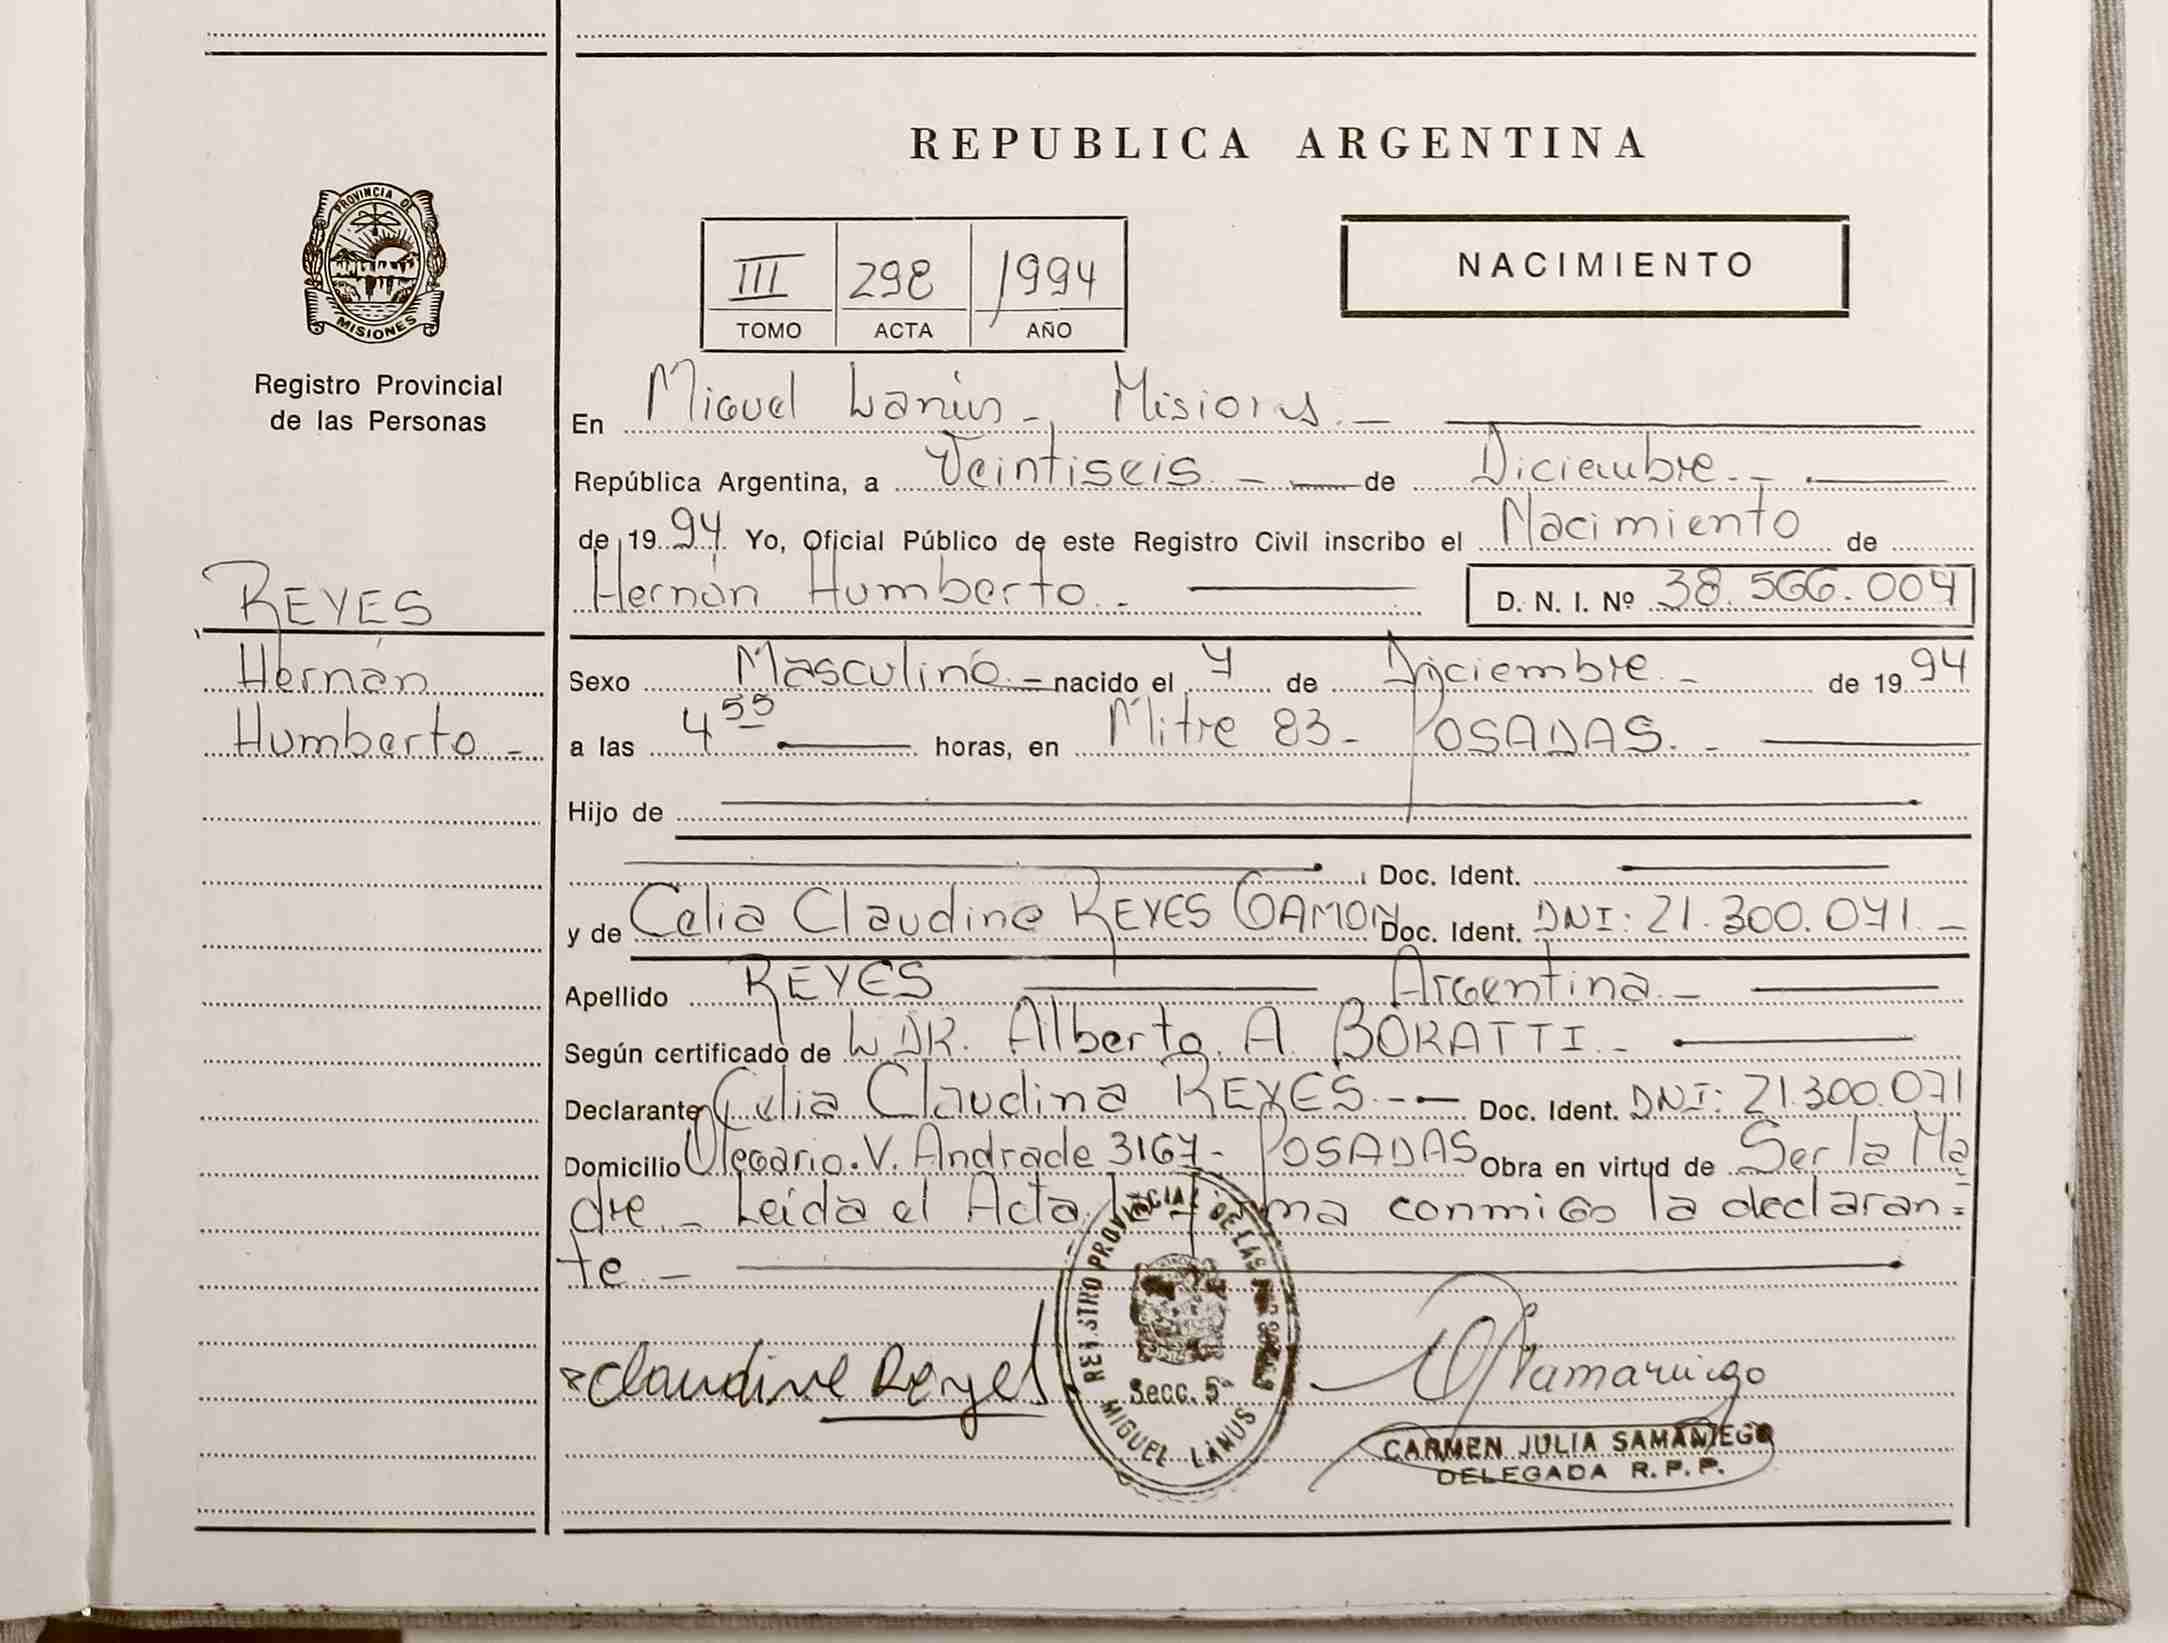 REPUBLICA ARGENTINA
PROVINCIA DE
MISIONES
Registro Provincial
de las Personas
NACIMIENTO
III 298 1994
TOMO ACTA AÑO
En Miguel Lanús - Misiones. -
República Argentina, a Veintiseis. - de Diciembre. -
de 1994 Yo, Oficial Público de este Registro Civil inscribo el Nacimiento de
Hernán Humberto. - D. N. I. Nº 38.566.004
REYES
Hernán
Humberto -
Sexo Masculino - nacido el 7 de Diciembre - de 1994
a las 4 55 horas, en Mitre 83 - POSADAS. -
Hijo de
Doc. Ident.
y de Celia Claudina REYES GAMON Doc. Ident. DNI: 21.300.071. -
Apellido REYES Argentina. -
Según certificado de DR. Alberto. A. BORATTI. -
Declarante Celia Claudina REYES. - Doc. Ident. DNI: 21.300.071
Domicilio Olegario. V. Andrade 3167 - POSADAS Obra en virtud de Ser la Ma
dre - Leida el Acta, conmigo la declaran=
te. -
Claudina Reyes
REGISTRO PROVINCIAL DE LAS
Secc. 5ª
MIGUEL LANUS
CARMEN JULIA SAMANIEGO
DELEGADA R.P.P.